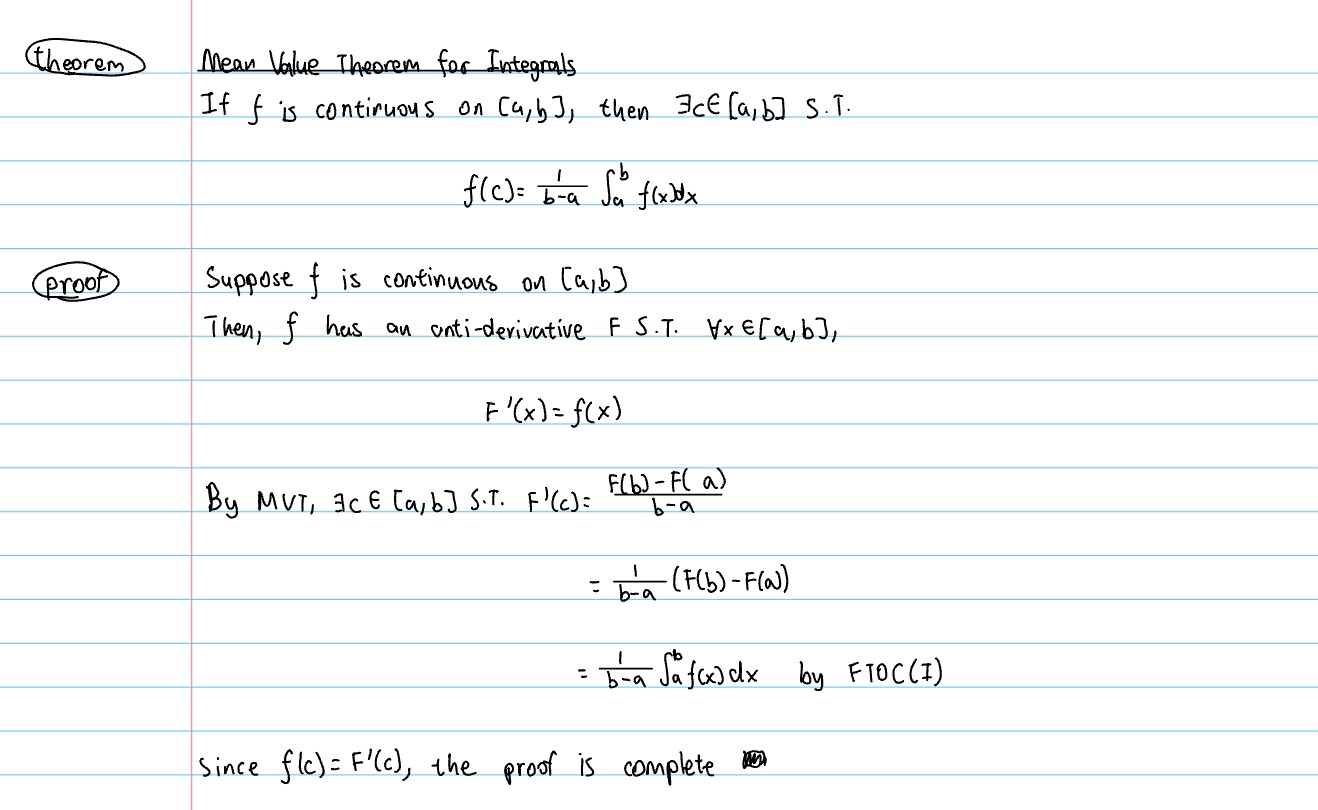 theorem Mean Value Theorem for Integrals
If f is continuous on [a,b], then ∃c∈[a,b] S.T.
f(c)= 1/(b-a) ∫_a^b f(x)dx
proof Suppose f is continuous on [a,b]
Then, f has an anti-derivative F S.T. ∀x∈[a,b],
F'(x)=f(x)
By MVT, ∃c∈[a,b] S.T. F'(c)= (F(b)-F(a))/(b-a)
= 1/(b-a) (F(b)-F(a))
= 1/(b-a) ∫_a^b f(x)dx by FTOC(I)
Since f(c)=F'(c), the proof is complete